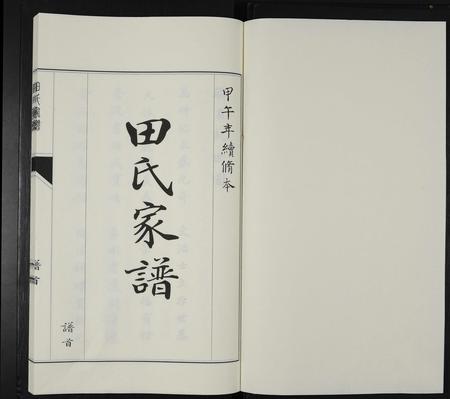 甲午年續脩本
田氏家譜
譜首
田氏家譜
譜首